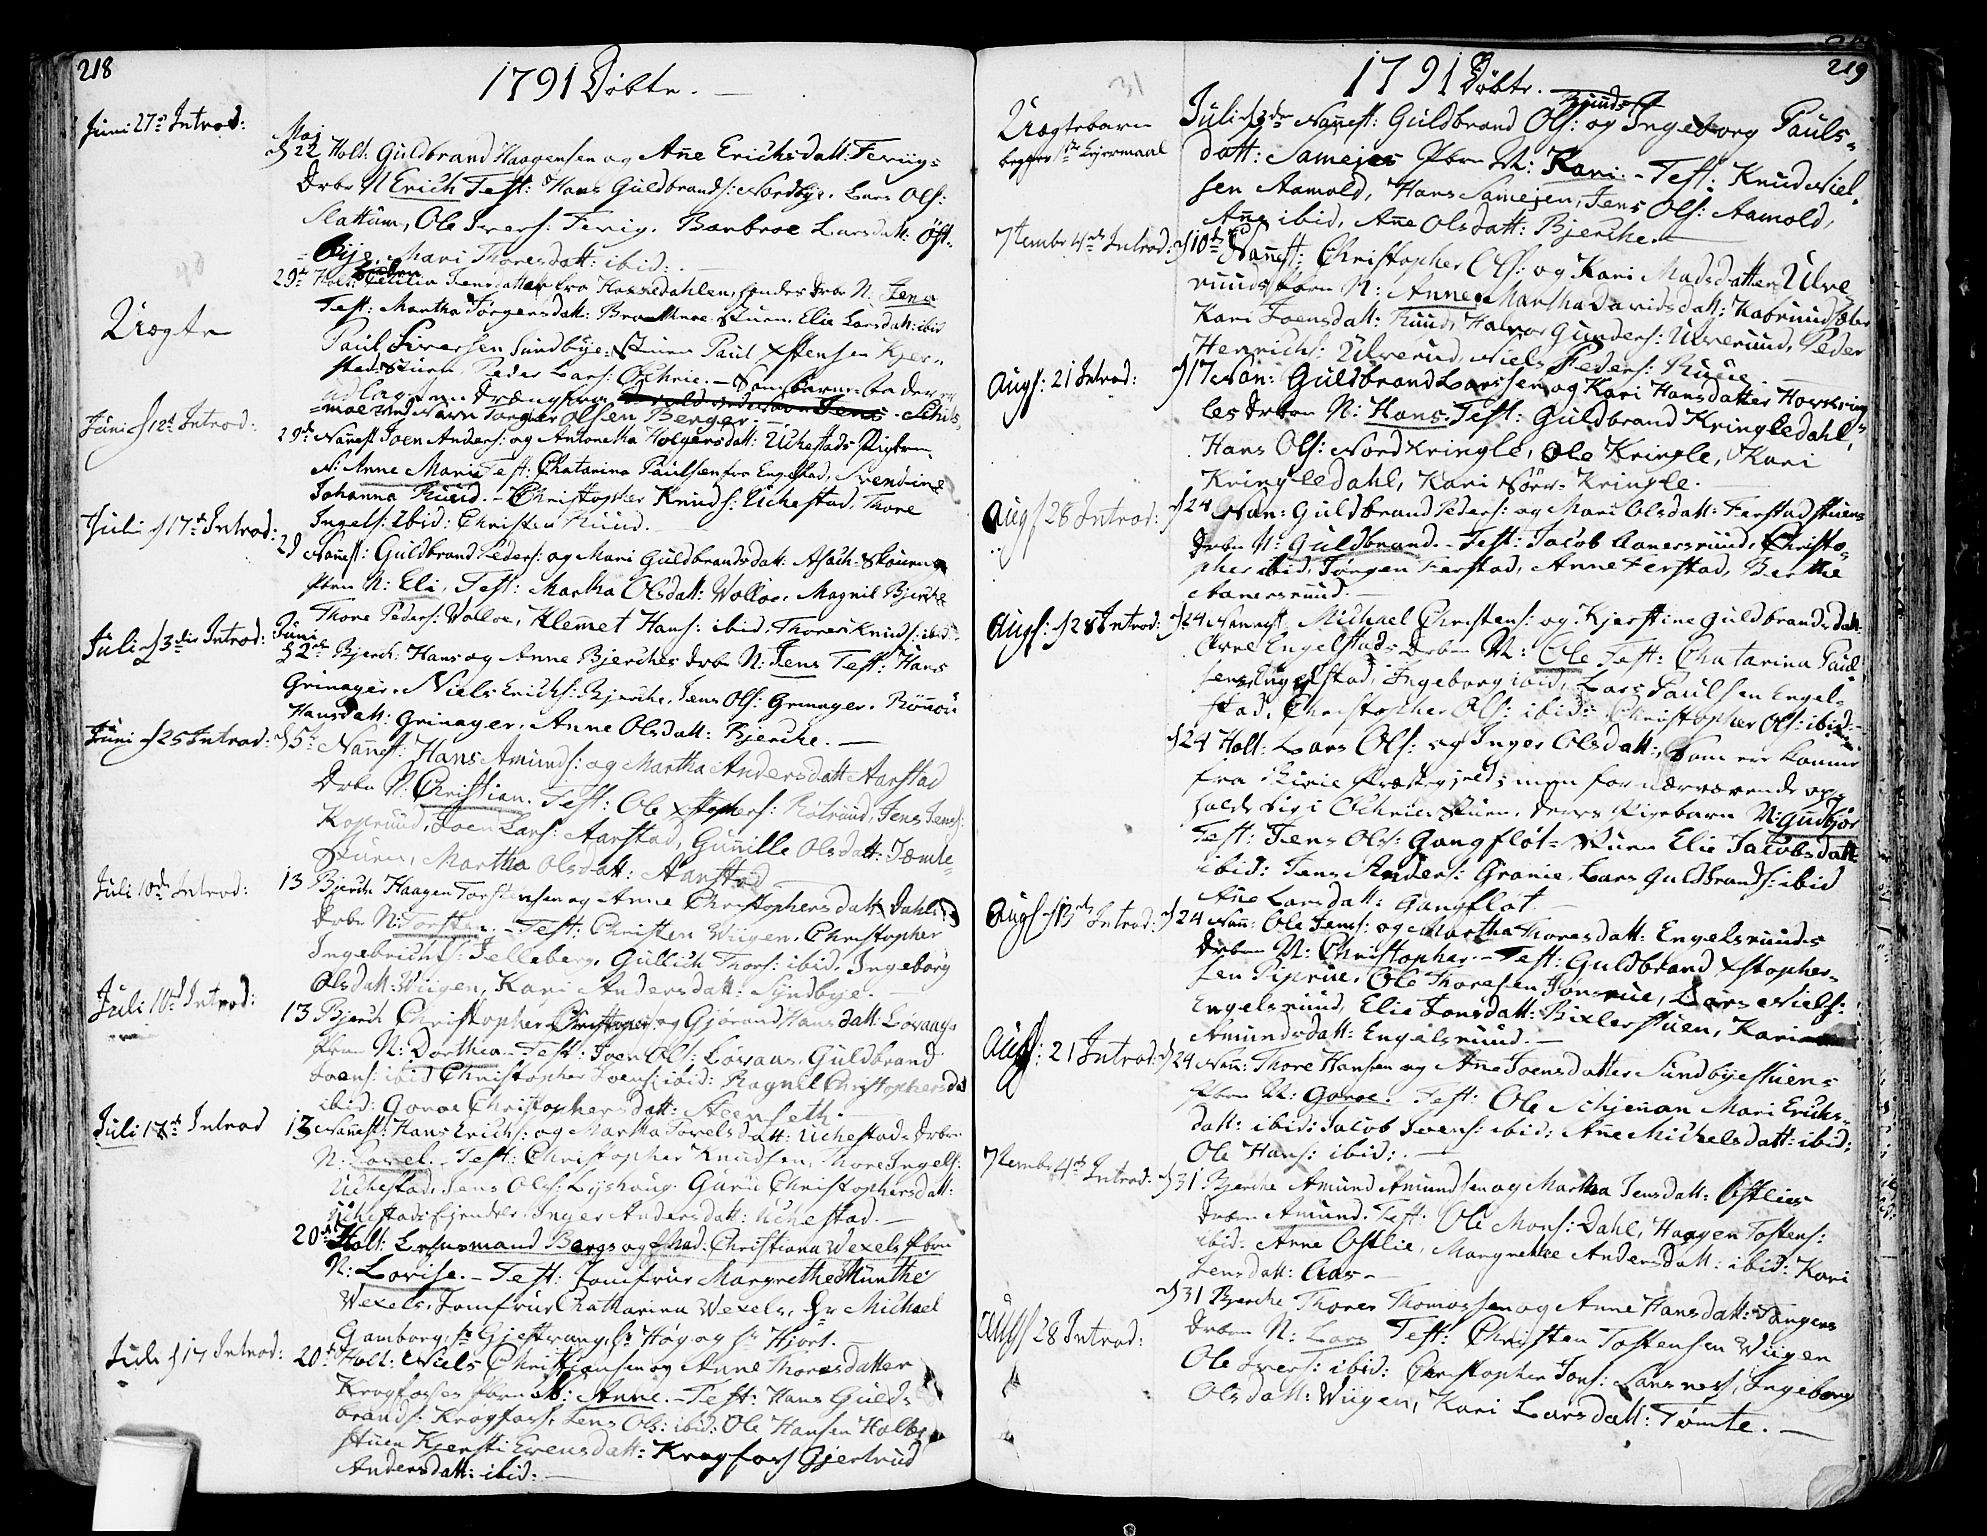 218
1791 Döbte. —
Juni 27de Introd:
Maj
d 22 Holt: Guldbrand Haagensen og Ane Erichsdatt: Feriigs
Drbr N Erich Test: Hans Guldbrands: Nordbye. Lars Ols:
Slattum, Ole Ivers: Ferig. Barbroe Larsdatt: Öst-
-bye, Mari Thoresdatt: ibid: . —
29de Holt: Cecilia Jensdatter fra Drbr N. Jens
Test: Martha Jörgensdatt: Elie Larsdatt: ibid
Uægte
Paul Siversen Sundbye- Paul Xstensen Kjer-
stad Peder Lars: Ochrie. — barne-
udlagde Jens. Schis
-moe Navn Torger Olsen Berger. —
Juni d 12te Introd:
29de Nanest Joen Anders: og Antonetha Holgersdatt: Uchestads
N: Anne Marie Test: Chatarina Paulsen fra Engelstad,
Johanna Ruud. — Christopher Knuds: Uchestad. Thore
Ingels: Ibid: Christen Ruud.
Juli d 17de Introd:
29 Nanest: Guldbrand Peders: og Mari Guldbrandsdatt: Asach-
N: Eli, Test: Martha Olsdatt: Wolloe, Magnil Bjerche
Thore Peders: Wolloe, Klemet Hans: ibid, Thores Knuds: ibid
Juli d 3die Introd:
Juni
d 2den Bjerch: Hans og Anne Bjerches Drbr N: Jens Test: Hans
Grinager. Niels Erichs: Bjerche. Jens Ols: Grinager.
Hansdatt: Grinager. Anne Olsdatt: Bjerche. —
Juni d 25 Introd:
d 5te Nanest: Hans Amunds: og Martha Andersdatt Aarstad
Drbr N: Christian. Test: Ole Xstophers: Jens Jens:
Koprüd, Joen Lars: Aarstad, Gunille Olsdatt: Tomte-
Martha Olsdatt: Aarstad —
Juli 10de Introd:
13 Bjerch Haagen Torstensen og Anne Christophersdatt Dahls
Drbr N: Torsten. — Test: Christen Wiigen. Christopher
Ingebrichts: Jelleberg. Gullich Thors: ibid. Ingeborg
Olsdatt: Wiigen, Kari Andersdatt: Syndbye. —
Juli 10de Introd:
13 Bjerch Christopher Christophers: og Gjörand Hansdatt: Lövaas
N: Dorthea. Test: Joen Ols: Lövaas. Guldbrand
Joens: ibid Christopher Joens: ibid: Ragnil Christophersdat
ibid: Goroe Christophersdatt: Steenseth. —
Juli 17de Introd
13 Nanest: Hans Erichs: og Martha Povelsdatt: Uchestad. Drbr
N: Povel. — Test: Christopher Knudsen, Thore Ingels:
Uchestad, Jens Ols: Lyshaug. Guru Christophersdatt:
Inger Andersdatt: Uchestad. —
20de Holt: Lensmand Bergs og Mad. Christiana Wexels
N: Lovise. — Test: Jomfrue Margrethe Munthe
Wexels, Jomfrue Chatharina Wexels, Hr Michael
Gamborg, Hr Gjestvang, Hr Höy og Hr Hjort. —
Juli d 17 Introd:
20de Holt: Niels Christiansen og Anne Thoresdatter
Krogfosses N: Anne. — Test: Hans Guld-
brands: Krogfoss, Jens Ols: ibid: Ole Hansen Holts
stuen Kjersti Evensdatt: Krogfoss Gjertrud
Andersdatt: ibid: —
31
219
1791 Döbte. —
Uægtebarn
Lejermaal
Juli d 3die Nanest: Guldbrand Ols: Ruuds og Ingeborg Pauls-
datt: Samejes N: Kari. — Test: Knud Niel-
sen Aamold, Hans Samejen, Jens Ols: Aamold,
Ane ibid, Ane Olsdatt: Bjerche. —
7tembr 4de Introd:
d 10de Nanest: Christopher Ols: og Kari Madsdatter Ulve
ruuds N: Anne. Martha Davidsdatt:
Kari Joensdatt: Ruud, Halvor Gunders: Ulverud, Peder
Henrichs: Ulverud, Niels Peders: Ruud. —
Augs: 21 Introd:
d 17 Nan: Guldbrand Larssen og Kari Hansdatter Nordkring-
les Drbr N: Hans. Test: Guldbrand Kringledahl,
Hans Ols: Nordkringle, Ole Kringle, Kari
Kringledahl, Kari Nörr- Kringle.
Augs 28 Introd:
d 24 Nan: Guldbrand Peders: og Mari Olsdatt: Ferstad stuens
Drbr N: Guldbrand. — Test: Jacob Aanersruud, Christo-
pher ibid, Jörgen Ferstad, Anne Ferstad, Berthe
Aanersruud. —
Augs: d 28 Introd:
d 24 Nanest, Michael Christens: og Kjerstine Guldbrandsdatt:
Engelstads Drbr N: Ole Test: Chatarina Paul-
sen Engelstad, Ingeborg ibid, Lars Paulsen Engel-
stad, Christopher Ols: ibid: Christopher Ols: ibid —
d 24 Holt: Lars Ols: og Inger Olsdatt:, som er komne
fra Birie Præstegjeld; men for nærværende op-
holde sig i Ochrie- deres Pigebarn N: Gudbjör
Test: Jens Ols: Gangflöt- Elie Jacobsdatt:
ibid: Jens Anders: Granie, Lars Guldbrands: ibid
Ane Larsdatt: Gangflöt. —
Augs d Introd:
d 24 Nan: Ole Jens: og Martha Thoresdatt: Engelsruuds
Drbr N: Christopher. — Test: Guldbrand Xstopher-
sen Piprue, Ole Thoresen Jonsrue, Lars Niels:
Engelsruud, Elie Jonsdatt: Bixlerstuen, Kari
Amundsdatt: Engelsruud. —
Augs: 21 Introd:
d 24 Nan: Thore Hansen og Ane Joensdatter Sundbyestuens
N: Goroe. Test: Ole Schjenan Mari Erichs-
datt: ibid: Jacob Ivers: ibid: Ane Michelsdatt: ibid:
Ole Hans: ibid: . —
7tembr 4de Introd:
d 31 Bjerche Amund Amundsen og Martha Jensdatt: Östlies
Drbr Amund. Test: Ole Mons: Dahl, Haagen Tostens:
ibid: Anne Östlie, Margrethe Andersdatt: ibid: Kari
Jensdatt: Aas. —
Augs 28 Introd:
d 31 Bjerche Thores Thomassen og Anne Hansdatt: Tangens
Drbr N: Lars Test: Christen Tostensen Wiigen
Ole Ivers: ibid: Christopher Jons: Larsnes, Ingeborg
Olsdatt: Wiigen, Kari Larsdatt: Tömte. —